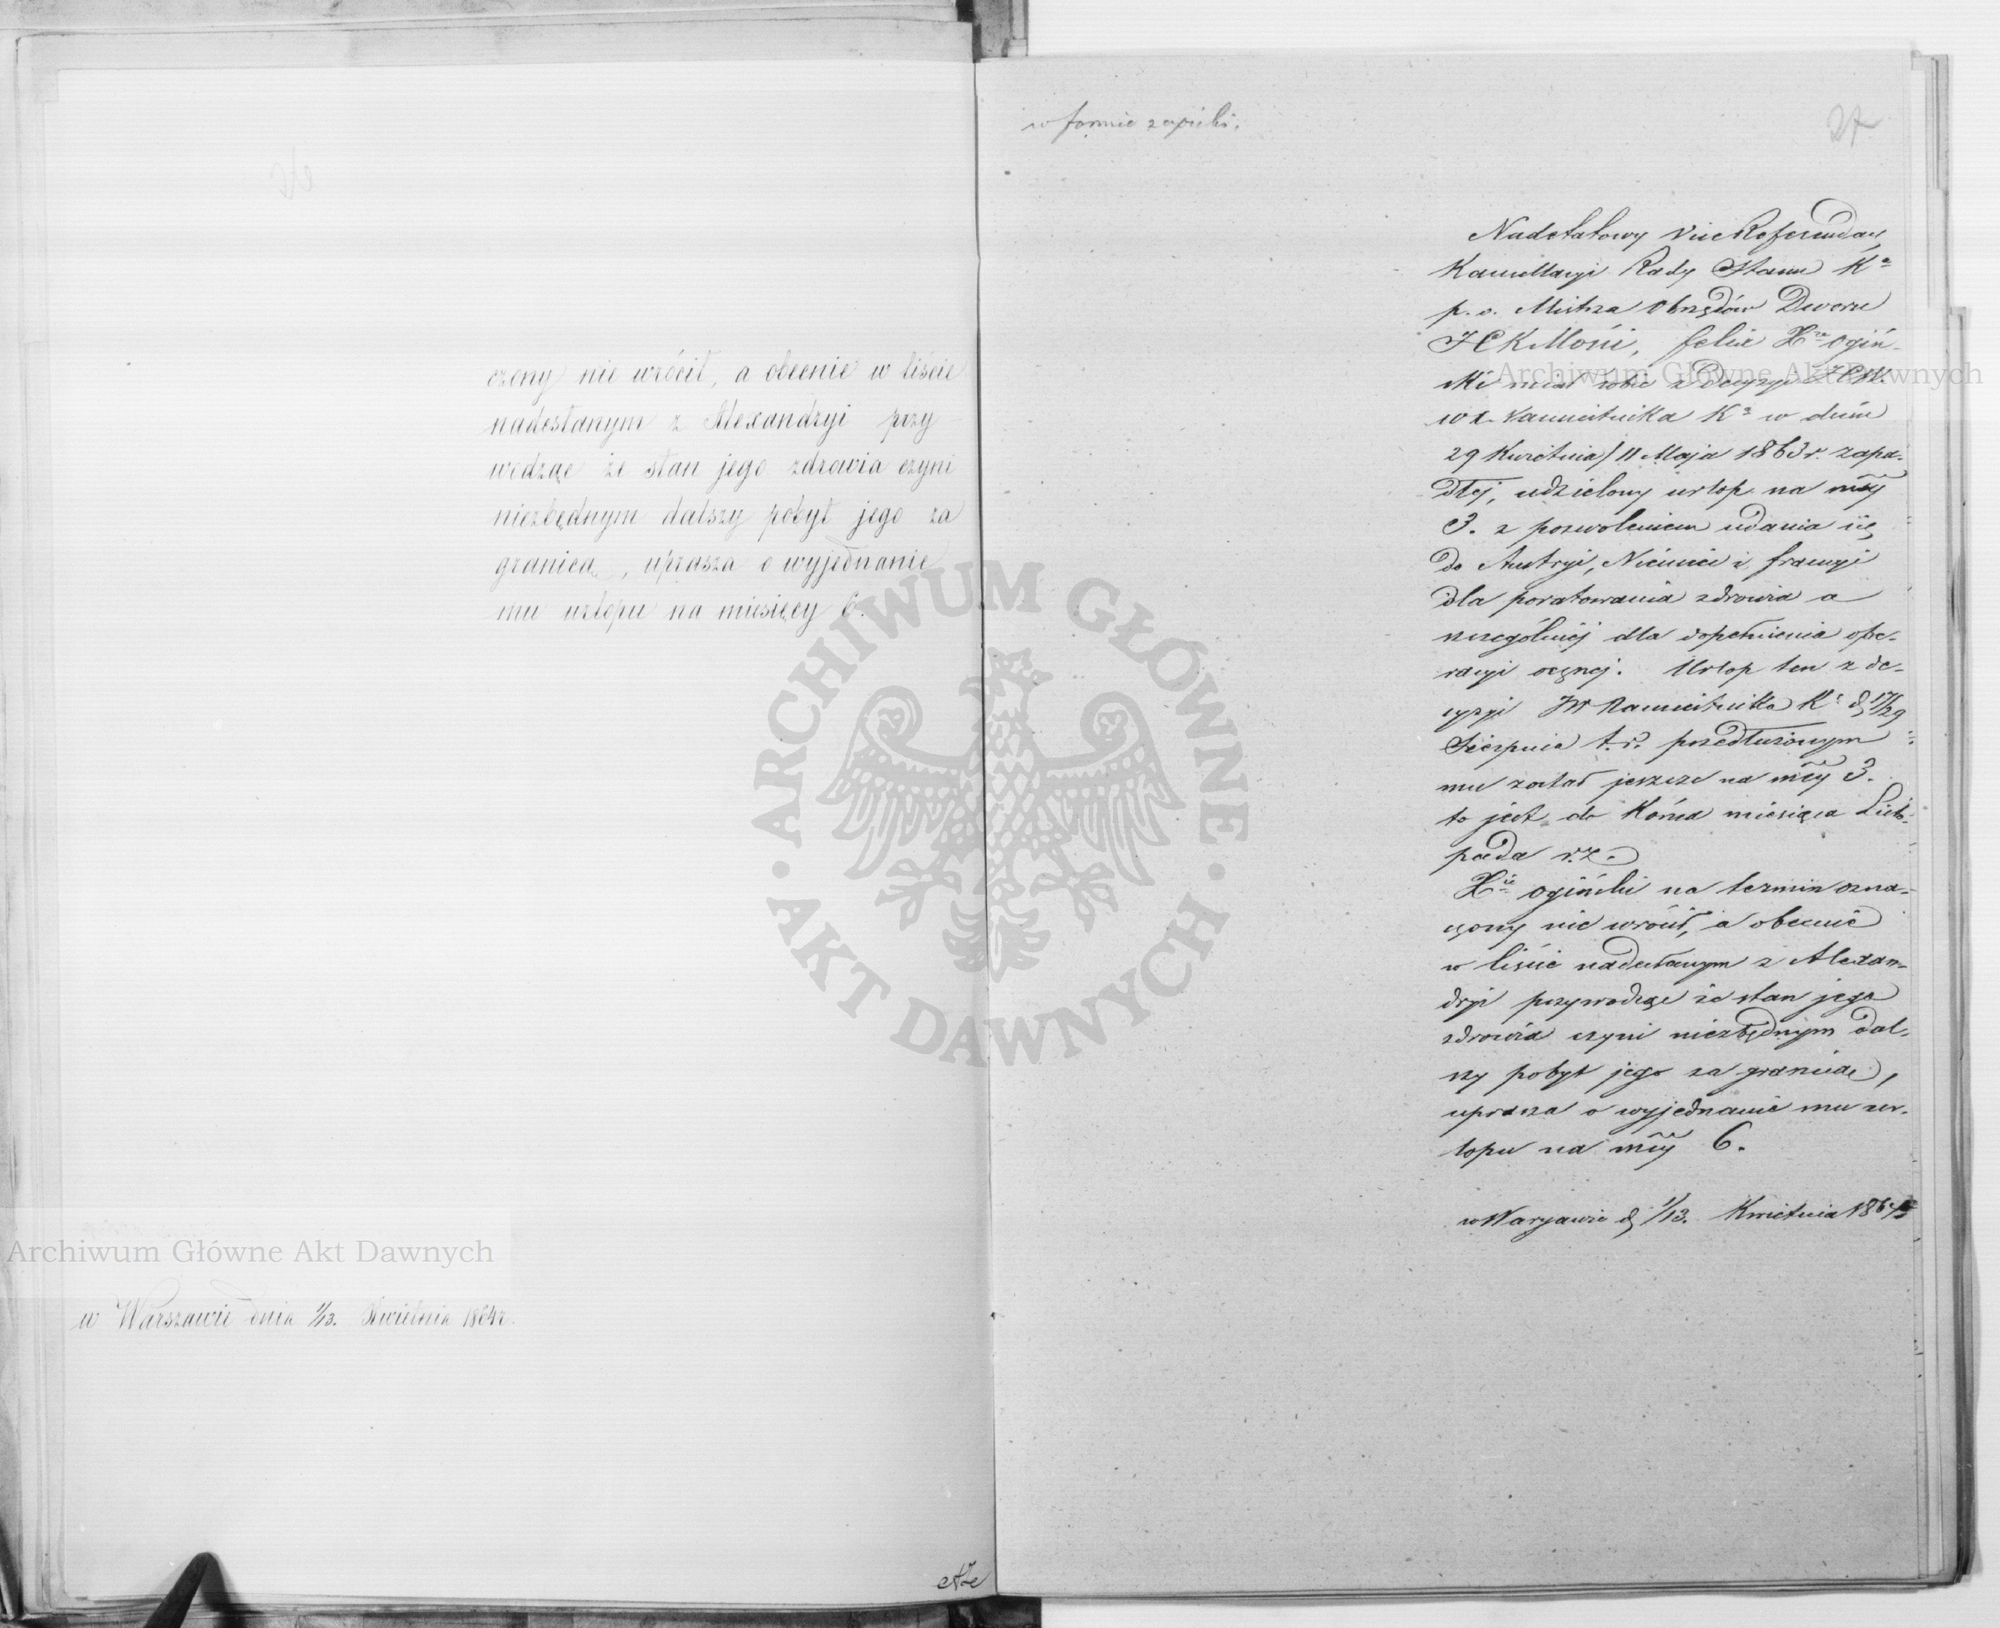 czony nie wrócił, a obecnie w liście
nadesłanym z Alexandryi przy
wodząc że stan jego zdrowia czyni
niezbędnym dalszy pobyt jego za
granicą, uprasza o wyjednanie
mu urlopu na miesięcy 6.
w Warszawie dnia 1/13. Kwietnia 1864 r.
w formie zapiski.
27
Nadetatowy ViceReferendarz
Kancellaryi Rady Stanu Ka
p. o. Mistrza Obrzędów Dworu
JCKMości, Felix Xże Ogiń-
ski miał sobie z Decyzyi JCW.
w X. Namiestnika Ka w dniu
29 Kwietnia/11 Maja 1863 r. zapa-
dłej, udzielony urlop na mcy
3. z pozwoleniem udania się
do Austryi, Niemiec i Francyi
dla poratowania zdrowia a
szczególniej dla dopełnienia ope-
racyi ocznej. Urlop ten z de-
cyzyi JW Namiestnika Ka d. 17/29
Sierpnia t. r. przedłużonym
mu został jeszcze na mcy 3.
to jest do końca miesiąca Listo-
pada r. z.
Xże Ogiński na termin ozna-
czony nie wrócił, a obecnie
w liście nadesłanym z Alexan-
dryi przywodząc że stan jego
zdrowia czyni niezbędnym dal-
szy pobyt jego za granicą,
uprasza o wyjednanie mu ur-
lopu na mcy 6.
w Warszawie d. 1/13. Kwietnia 1864
ARCHIWUM GŁÓWNE
AKT DAWNYCH
Archiwum Główne Akt Dawnych
Archiwum Główne Akt Dawnych